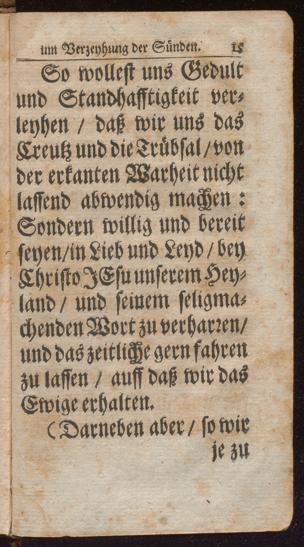 um Verzeyhung der Sünden. 15
So wollest uns Gedult
und Standhafftigkeit ver-
leyhen / daß wir uns das
Creutz und die Trübsal / von
der erkanten Warheit nicht
lassend abwendig machen :
Sondern willig und bereit
seyen / in Lieb und Leyd / bey
Christo JEsu unserem Hey-
land / und seinem seligma-
chenden Wort zu verharren /
und das zeitliche gern fahren
zu lassen / auff daß wir das
Ewige erhalten.
(Darneben aber / so wir
je zu